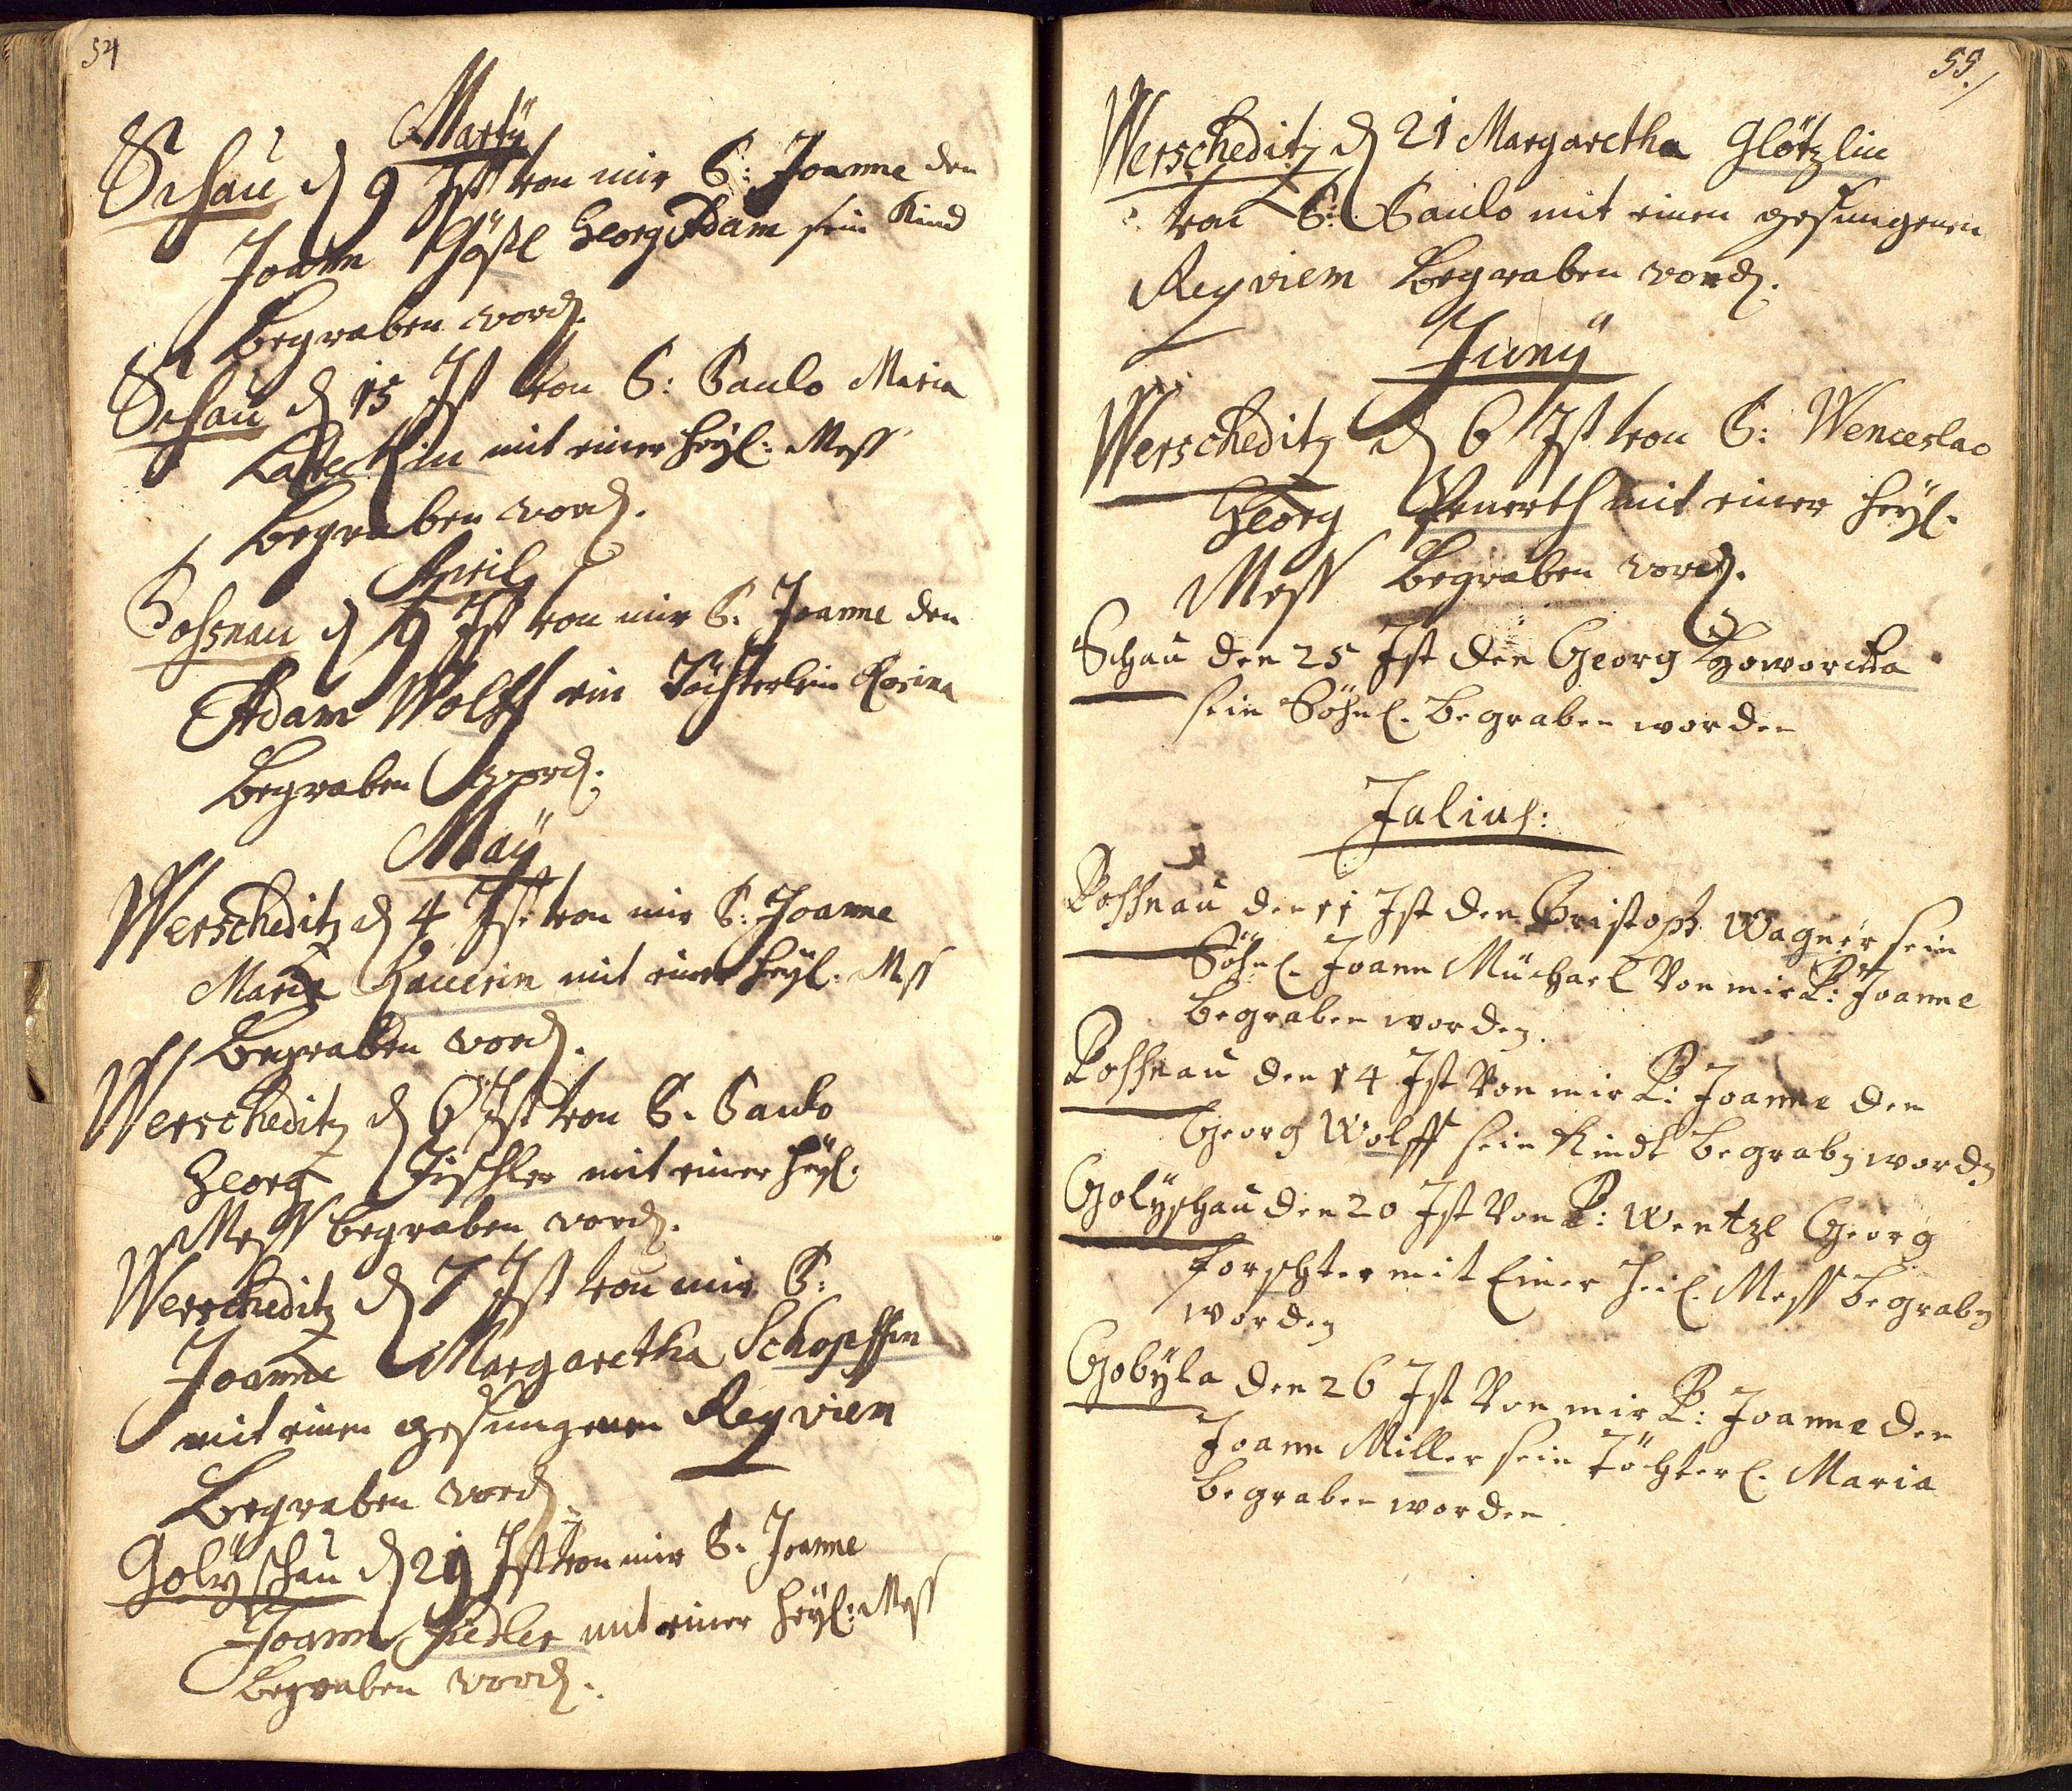 54
Martÿ
Schau d 9 Ist von mir P: Joanne den
Joann Gößl Georg Adam sein Kind
Begraben word.
Schau d 15 Ist von P: Paulo Maria
mit einer heÿl: Mess
Begraben word.
April
Possnau d 9 Ist von mir P. Joanne den
Adam Wolff ein Töchterlein Rosina
Begraben word:
Maÿ
Werscheditz d 4 Ist von mir P: Joanne
Maria Hauerin mit einer heÿl. Mess
Begraben word.
Werscheditz d 6 Ist von P. Paulo
Georg Tischler mit einer heÿl.
Mess begraben word.
Werscheditz d 7 Ist von mir P:
Joanne Margaretha Schopffin
mit einen gesungenen Reqviem
Begraben word
Golÿschau d 29 Ist von mir P. Joanne
Joann Fiedler mit einer heÿl: Mess
Begraben word.
55.
Werscheditz d 21 Margaretha Glötzlin
von P: Paulo mit einen gesungenen
Reqviem Begraben word.
Junÿ
Werscheditz d 6 Ist von P: Wenceslao
Georg mit einer heÿl.
Mess Begraben word.
Schau den 25 Ist den Georg Howorcka
sein Söhnl. Begraben worden
Julius:
Possnau den 11 Ist den Cristoph Wagner sein
Söhnl. Joann Müchael Von mir P: Joanne
Begraben worden.
Possnau den 14 Ist Von mir P: Joanne den
Georg Wolff sein Kindt Begraben worden
Golÿschau den 20 Ist Von P: Wentzl Georg
Forschter mit Einer heil. Mess Begraben
worden
Gobÿla den 26 Ist Von mir P: Joanne den
Joann Miller sein Töchterl. Maria
Begraben worden